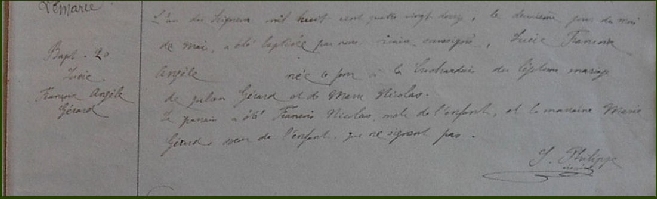 Lemarié
L'an du Seigneur mil huit cent quatre vingt onze, le deuxième jour du mois
Bapt. 20
de Mai, a été baptisée par nous vicaire soussigné, Lucie Françoise
Lucie
Angèle née ce jour à la du légitime mariage
Françoise Angèle
de Julien Gérard et de Marie Nicolas.
Gérard
Le parrain a été Francis Nicolas, oncle de l'enfant, et la marraine Marie
Gérard, sœur de l'enfant qui ne signent pas.
J. Philippe